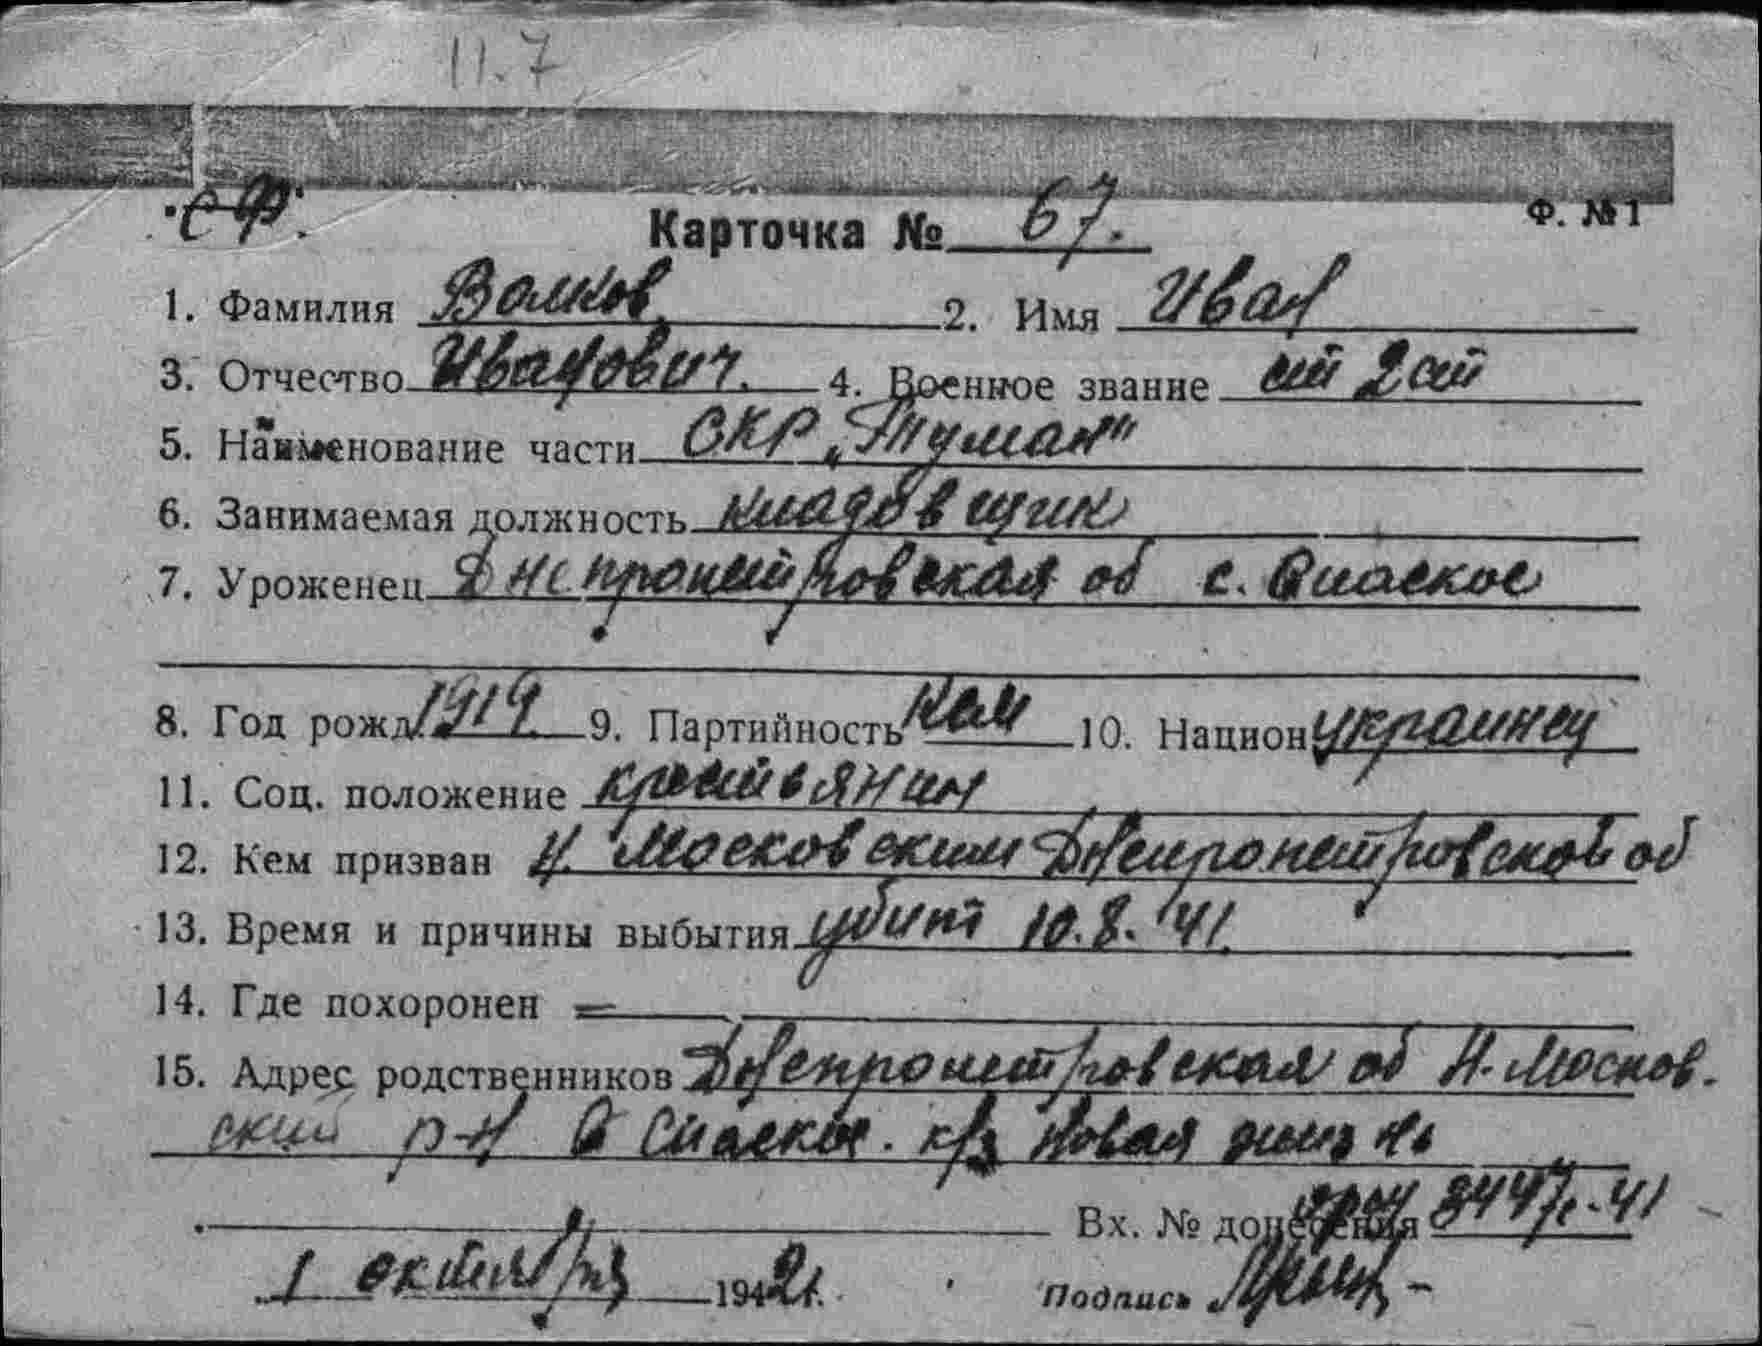 11.7
СФ.
Ф. №1
Карточка № 67.
1. Фамилия Волков 2. Имя Иван
3. Отчество Иванович. 4. Военное звание ст 2 ст
5. Наименование части СКР „Туман"
6. Занимаемая должность кладовщик
7. Уроженец Днепропетровская об с. Спаское
8. Год рожд. 1919 9. Партийность Ком 10. Национ украинец
11. Соц. положение крестьянин
12. Кем призван Н. Московским Днепропетровской об
13. Время и причины выбытия убит 10.8.41.
14. Где похоронен =
15. Адрес родственников Днепропетровская об Н. Москов.
ский р-н С Спаское. к/з Новая жизнь
Вх. № донесения 3447с-41
1 октября 1942г.
Подпись